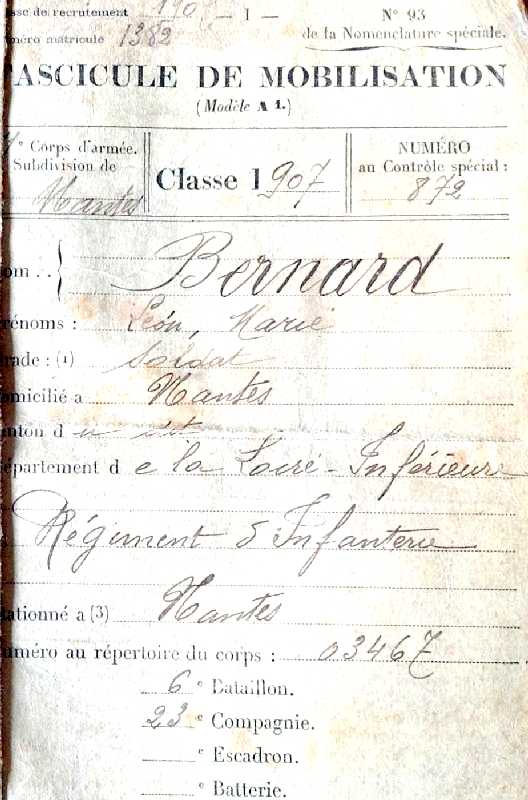 asse de recrutement 190 — I — N° 93
uméro matricule 1382 de la Nomenclature spéciale.
FASCICULE DE MOBILISATION
(Modèle A 1.)
e Corps d'armée.
Subdivision de
Nantes
Classe 1907
NUMÉRO
au Contrôle spécial :
872
om .. Bernard
rénoms : Léon, Marie
rade : (1) Soldat
omicilié a Nantes
anton d u
épartement d e la Loire-Inférieure
Régiment d'Infanterie
tationné a (3) Nantes
uméro au répertoire du corps : 03467
6 e Bataillon.
23 e Compagnie.
e Escadron.
e Batterie.